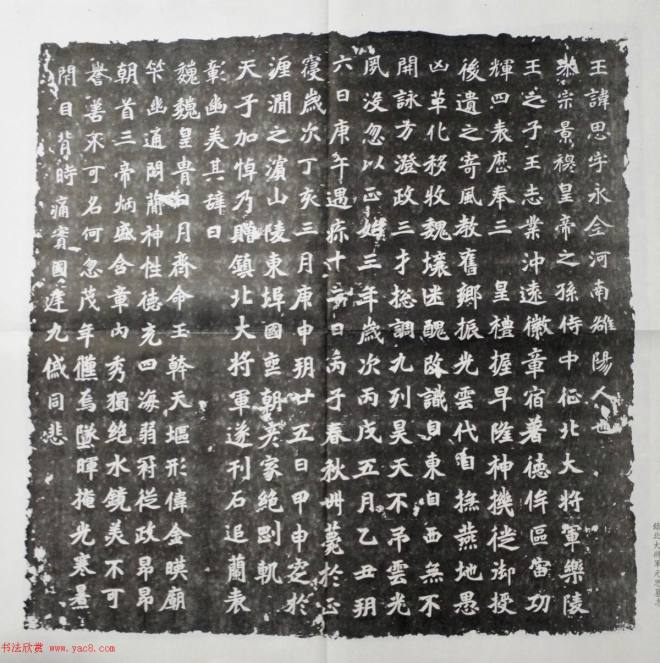 王諱思字永全河南雒陽人也
恭宗景穆皇帝之孫侍中征北大將軍樂陵
王之子王志業沖遠徽章宿著德侔區宙功
輝四表歷奉三皇禮握早隆神機徙御授
後遺之寄風教舊鄉振光雲代自撫燕地愚
凶革化移牧魏壤迷醜改識自東自西無不
開詠方澄政三才揔調九列昊天不弔雲光
夙沒忽以正始三年歲次丙戌五月乙丑朔
六日庚午遇疹十二日丙子春秋卌薨於正
寢歲次丁亥三月庚申朔廿五日甲申窆於
瀍澗之濱山陵東埠國喪朝彥家絕剛軌
天子加悼乃贈鎮北大將軍遂刊石追蘭表
彰幽美其辭曰
巍巍皇胄日月齊命玉幹天堀形偉金暎廟
竿幽通閟蘭神性德充四海弱冠從政昂昂
朝首三帝炳盛含章內秀獨絕水鏡美不可
譽善不可名何忽茂年儷焉墜暉掩光寒景
閇目背時痛賓國遅九戚同悲
鎮北大將軍元思墓志
书法欣赏 www.yac8.com